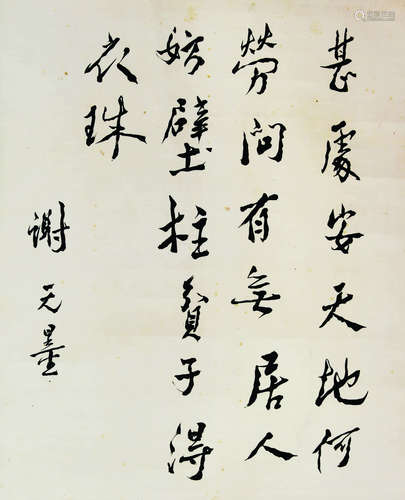 甚處安天地何
勞問有無居人
妨壁柱貧子得
衣珠
謝无量